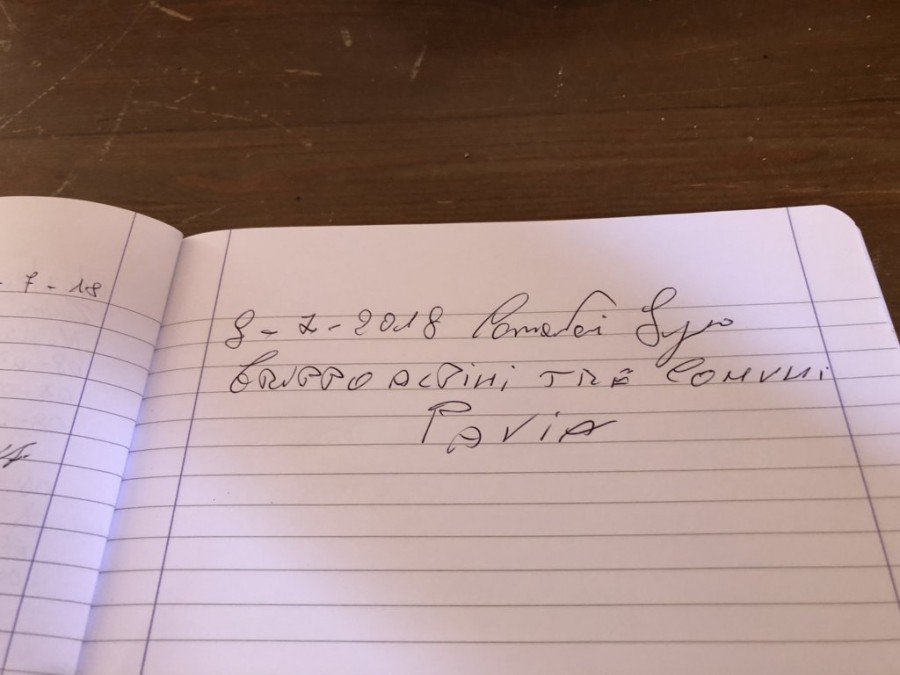 - 7 - 18
8-7-2018
GRUPPO ALPINI TRE COMUNI
PAVIA